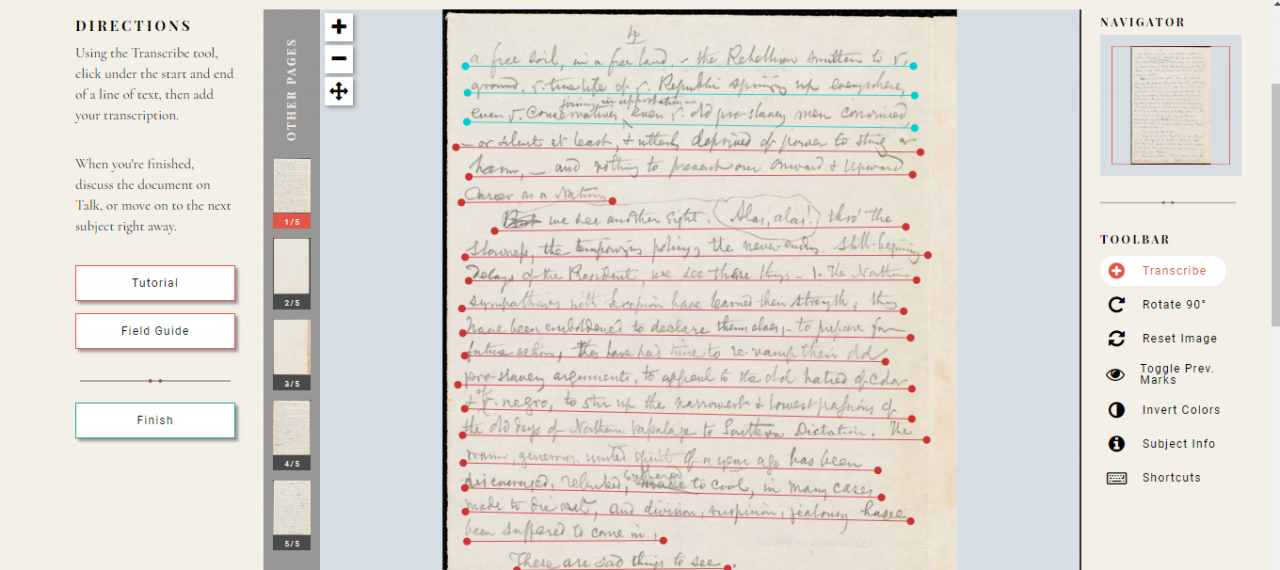 DIRECTIONS
Using the Transcribe tool,
click under the start and end
of a line of text, then add
your transcription.
When you're finished,
discuss the document on
Talk, or move on to the next
subject right away.
Tutorial
Field Guide
Finish
OTHER PAGES
1/5
2/5
3/5
4/5
5/5
4
a free soil, in a free land, – the Rebellion smitten to
ground, true life of Republic springing up everywhere,
joining in approbation –
even Conservatives, even old pro-slavery men convinced,
– or silent at least, & utterly deprived of power to sting or
harm, – and nothing to prevent our Onward & Upward
Career as a Nation.
But we see another sight. Alas, alas! thro' the
slowness, the temporizing policy, the never-ending still-beginning
delays of the President, we see these things – 1. The Northern
sympathizers with have learned their strength; they
have been emboldened to declare themselves; – to prepare for
future action; they have had time to re-vamp their old
pro-slavery arguments, to appeal to the old hatred of color
& of negro, to stir up the narrowest & lowest passions of
the old days of Northern vassalage to Southern Dictation. The
warm, generous, united spirit of a year ago has been
suffered
discouraged, rebuked, made to cool, in many cases
made to die out, and division, suspicion, jealousy have
been suffered to come in;
These are sad things to see.
NAVIGATOR
TOOLBAR
Transcribe
Rotate 90°
Reset Image
Toggle Prev.
Marks
Invert Colors
Subject Info
Shortcuts